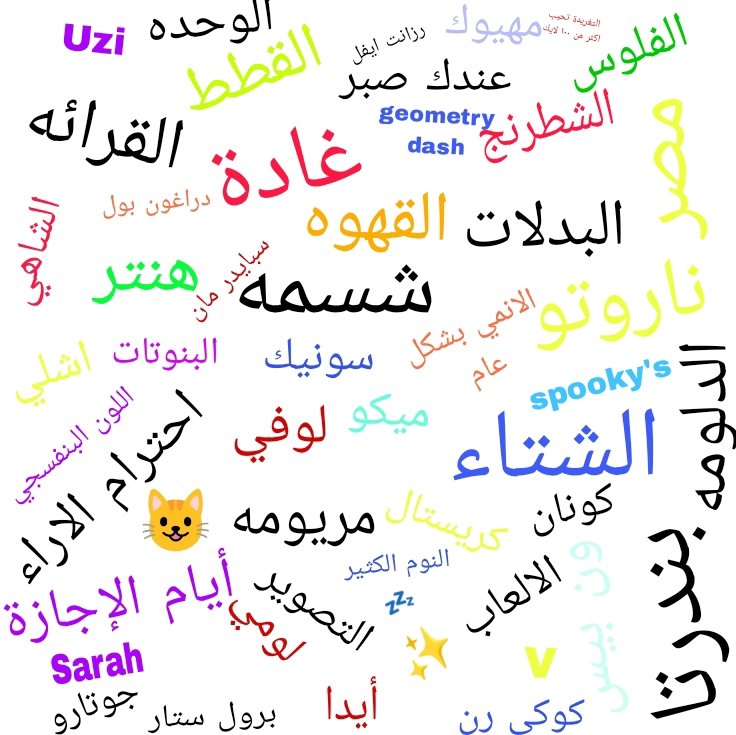 الوحده
Uzi
القطط
رزانت ايفل
مهيوك
التغريدة تجيب
اكثر من ١٠٠ لايك
الفلوس
عندك صبر
القرائه
geometry
dash
الشطرنج
مصر
غادة
دراغون بول
الشاهي
القهوه
البدلات
هنتر
سبايدر مان
شسمه
ناروتو
الانمي بشكل
عام
اشلي
البنوتات
سونيك
spooky's
الدلومه
اللون البنفسجي
احترام الاراء
لوفي
ميكو
الشتاء
مريومه
كريستال
كونان
النوم الكثير
zzz
أيام الإجازة
التصوير
لومي
الالعاب
ون بيس
بندرتا
Sarah
v
جوتارو
برول ستار
أيدا
كوكى رن